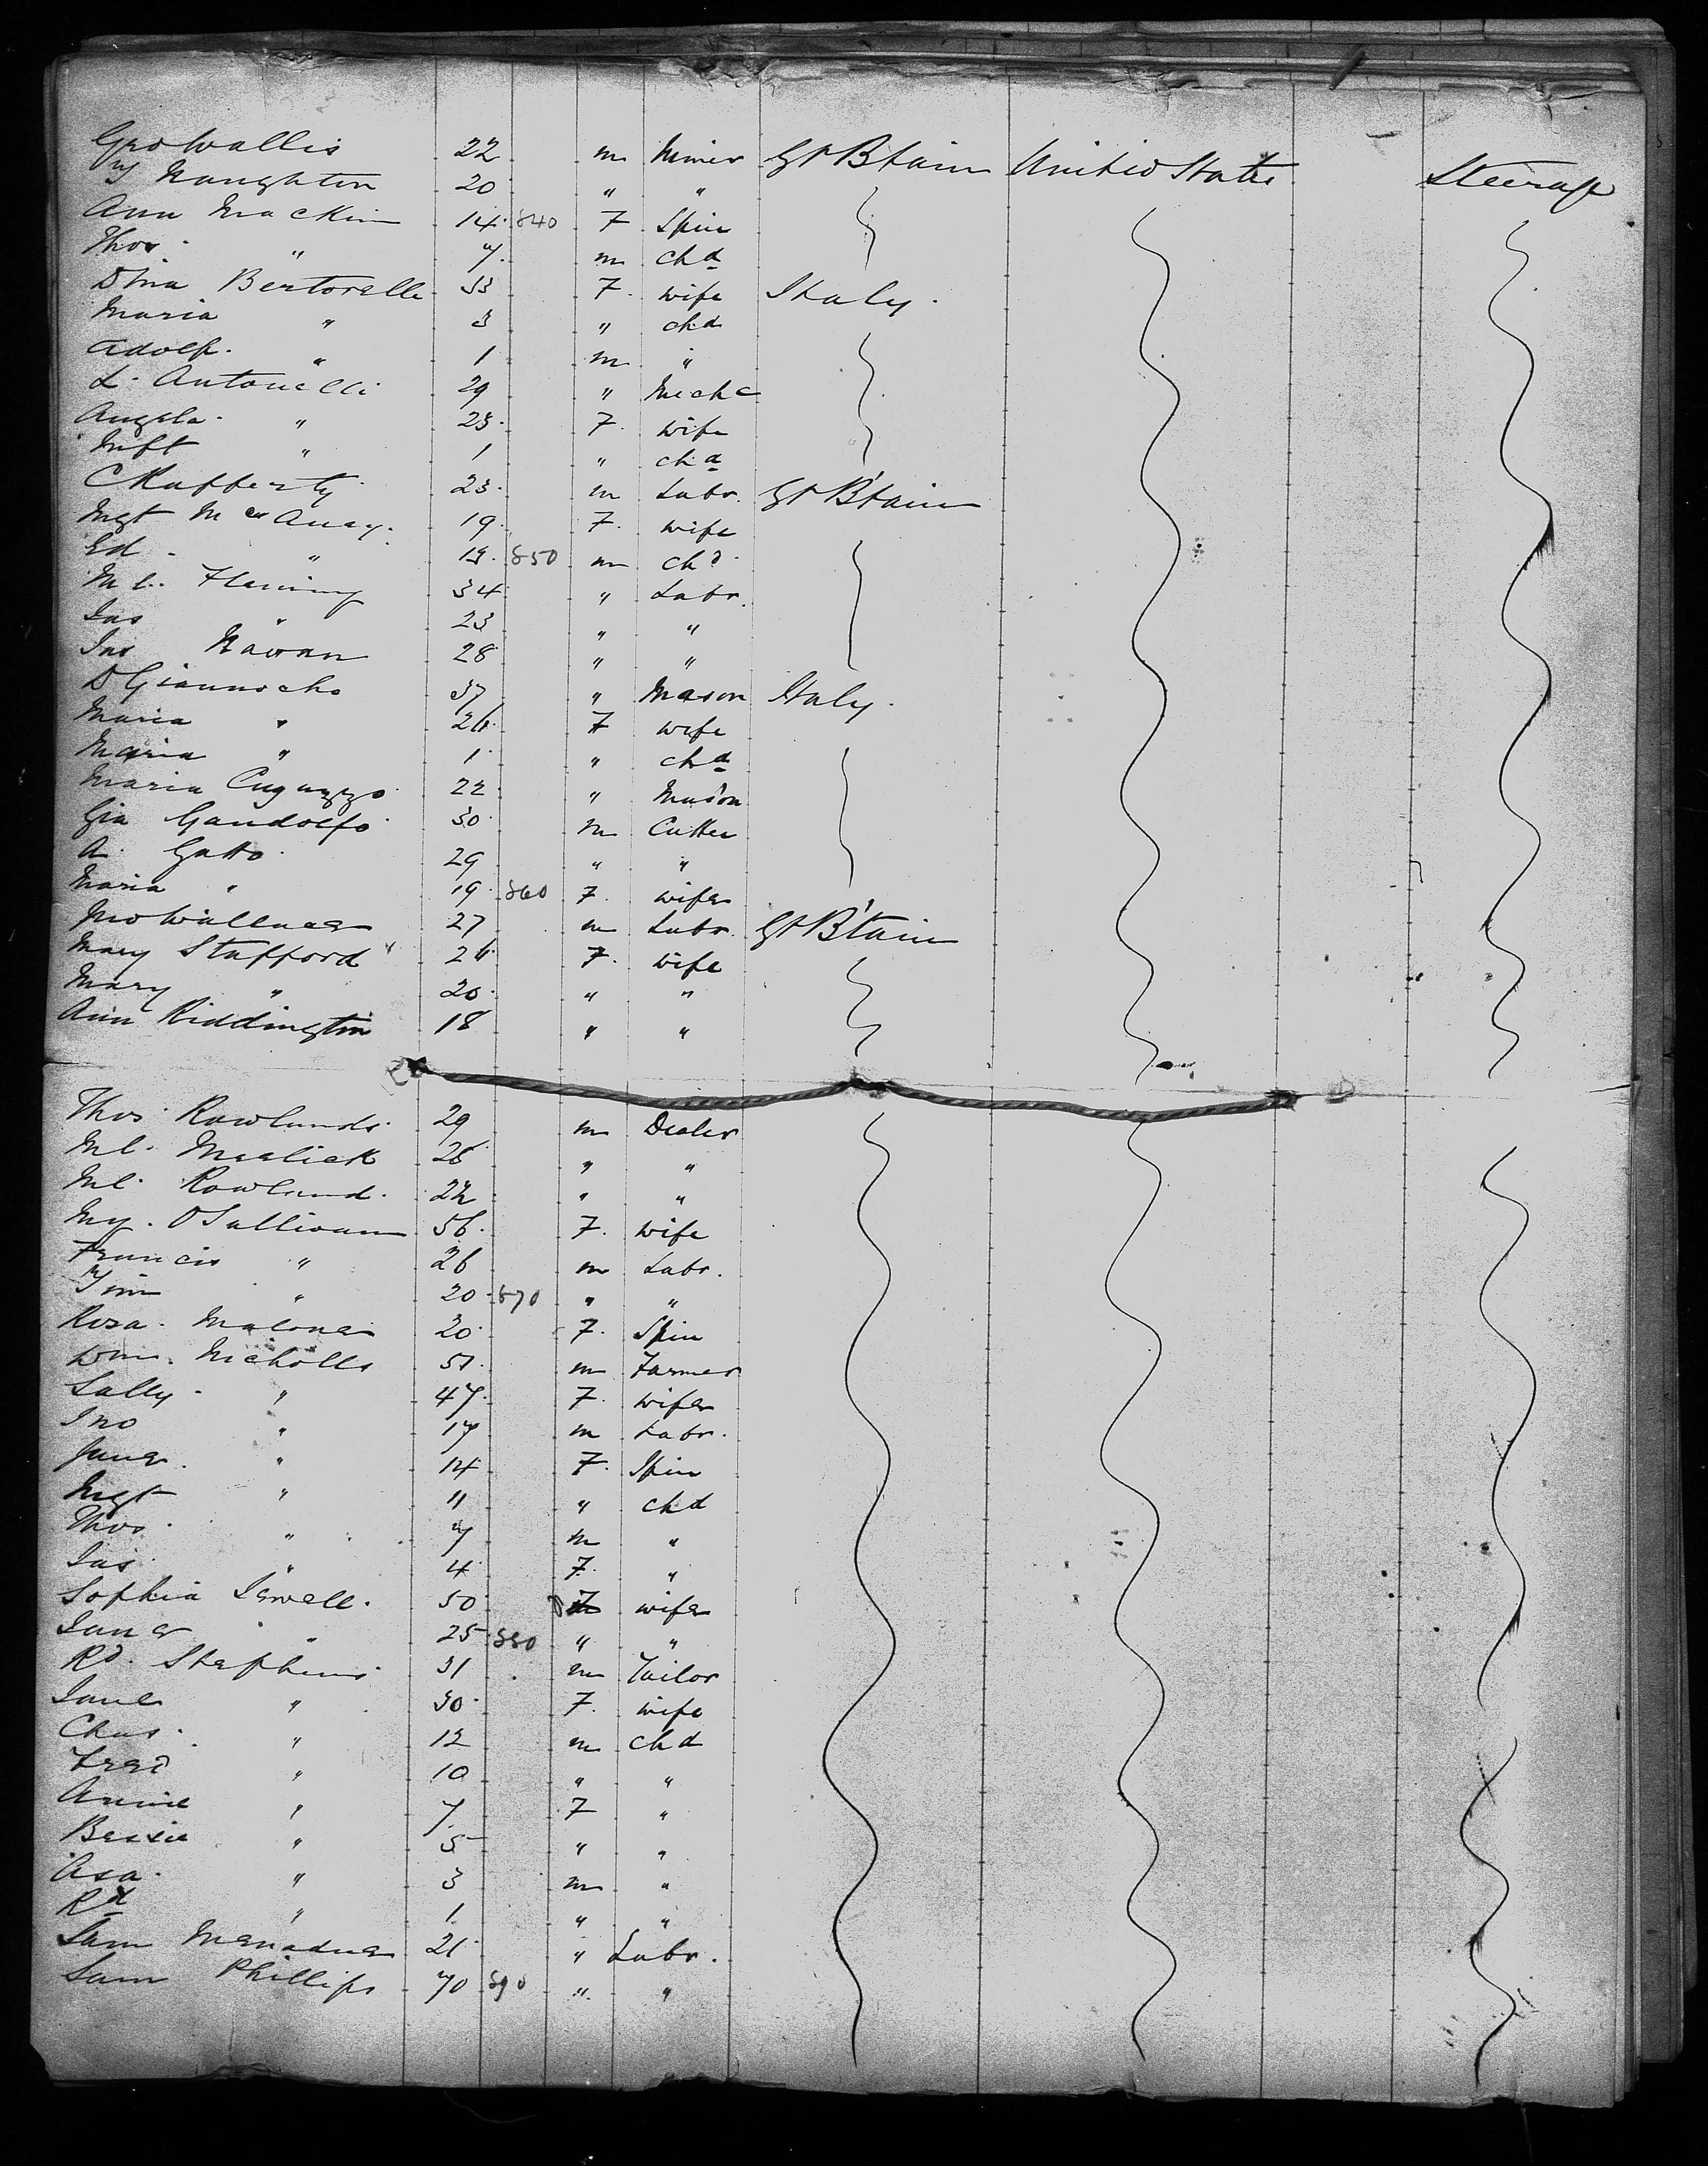 Geo Wallis 22 m Miner Gt Btain United States Steerage
My Naughton 20 " "
Ann Mackin 14 840 F Spin
Thos " 7 m chd
Dina Bertorelle 33 F wife Italy
Maria " 3 " chd
Adolf " 1 m "
L. Antonelli 29 " Mechc
Angela " 23 F wife
Inft " 1 " chd
C Rafferty 23 m Labr. Gt B'tain
Mgt 19 F wife
Ed " 850 m chd
Ml. Fleming 34 " Labr.
Jas " 23 " "
Jno 28 " "
37 " Mason Italy
Maria " 26 F wife
Maria " 1 " chd
Maria 22 " Mason
Gia Gandolfo 30 m Cutter
A. Gatto 29 " "
Maria " 19 860 F wife
Jno Wallace 27 m Labr. Gt B'tain
Mary Stafford 26 F wife
Mary " 20 " "
Ann Riddington 18 " "
Thos Rowlands 29 m Dealer
Ml. 28 " "
Ml. Rowland 22 " "
My. O Sullivan 56 F wife
Francis " 26 m Labr.
Tim " 20 870 " "
Rosa Malone 20 F Spin
Wm. Nicholls 51 m Farmer
Sally " 47 F wife
Jno " 17 m Labr.
Jane " 14 F Spin
Mgt " 11 " chd
Thos " 7 m "
Jas " 4 F "
Sophia Jewell 50 F wife
Jane " 25 880 " "
Rd. Stephens 31 m Tailor
Jane " 30 F wife
Chas " 12 m chd
Fred " 10 " "
Annie " 7 F "
Bessie " 5 " "
Asa " 3 m "
Rd " 1 " "
Sam Manadue 21 " Labr.
Sam Phillips 70 890 " "